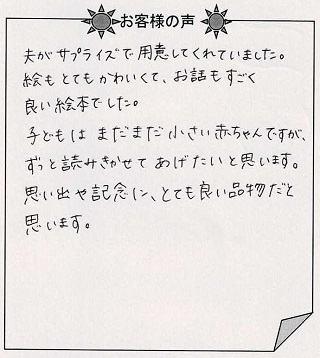 お客様の声
夫がサプライズで用意してくれていました。
絵もとてもかわいくて、お話もすごく
良い絵本でした。
子どもは まだまだ 小さい赤ちゃんですが、
ずっと読みきかせて あげたいと思います。
思い出や記念に、とても良い品物だと
思います。